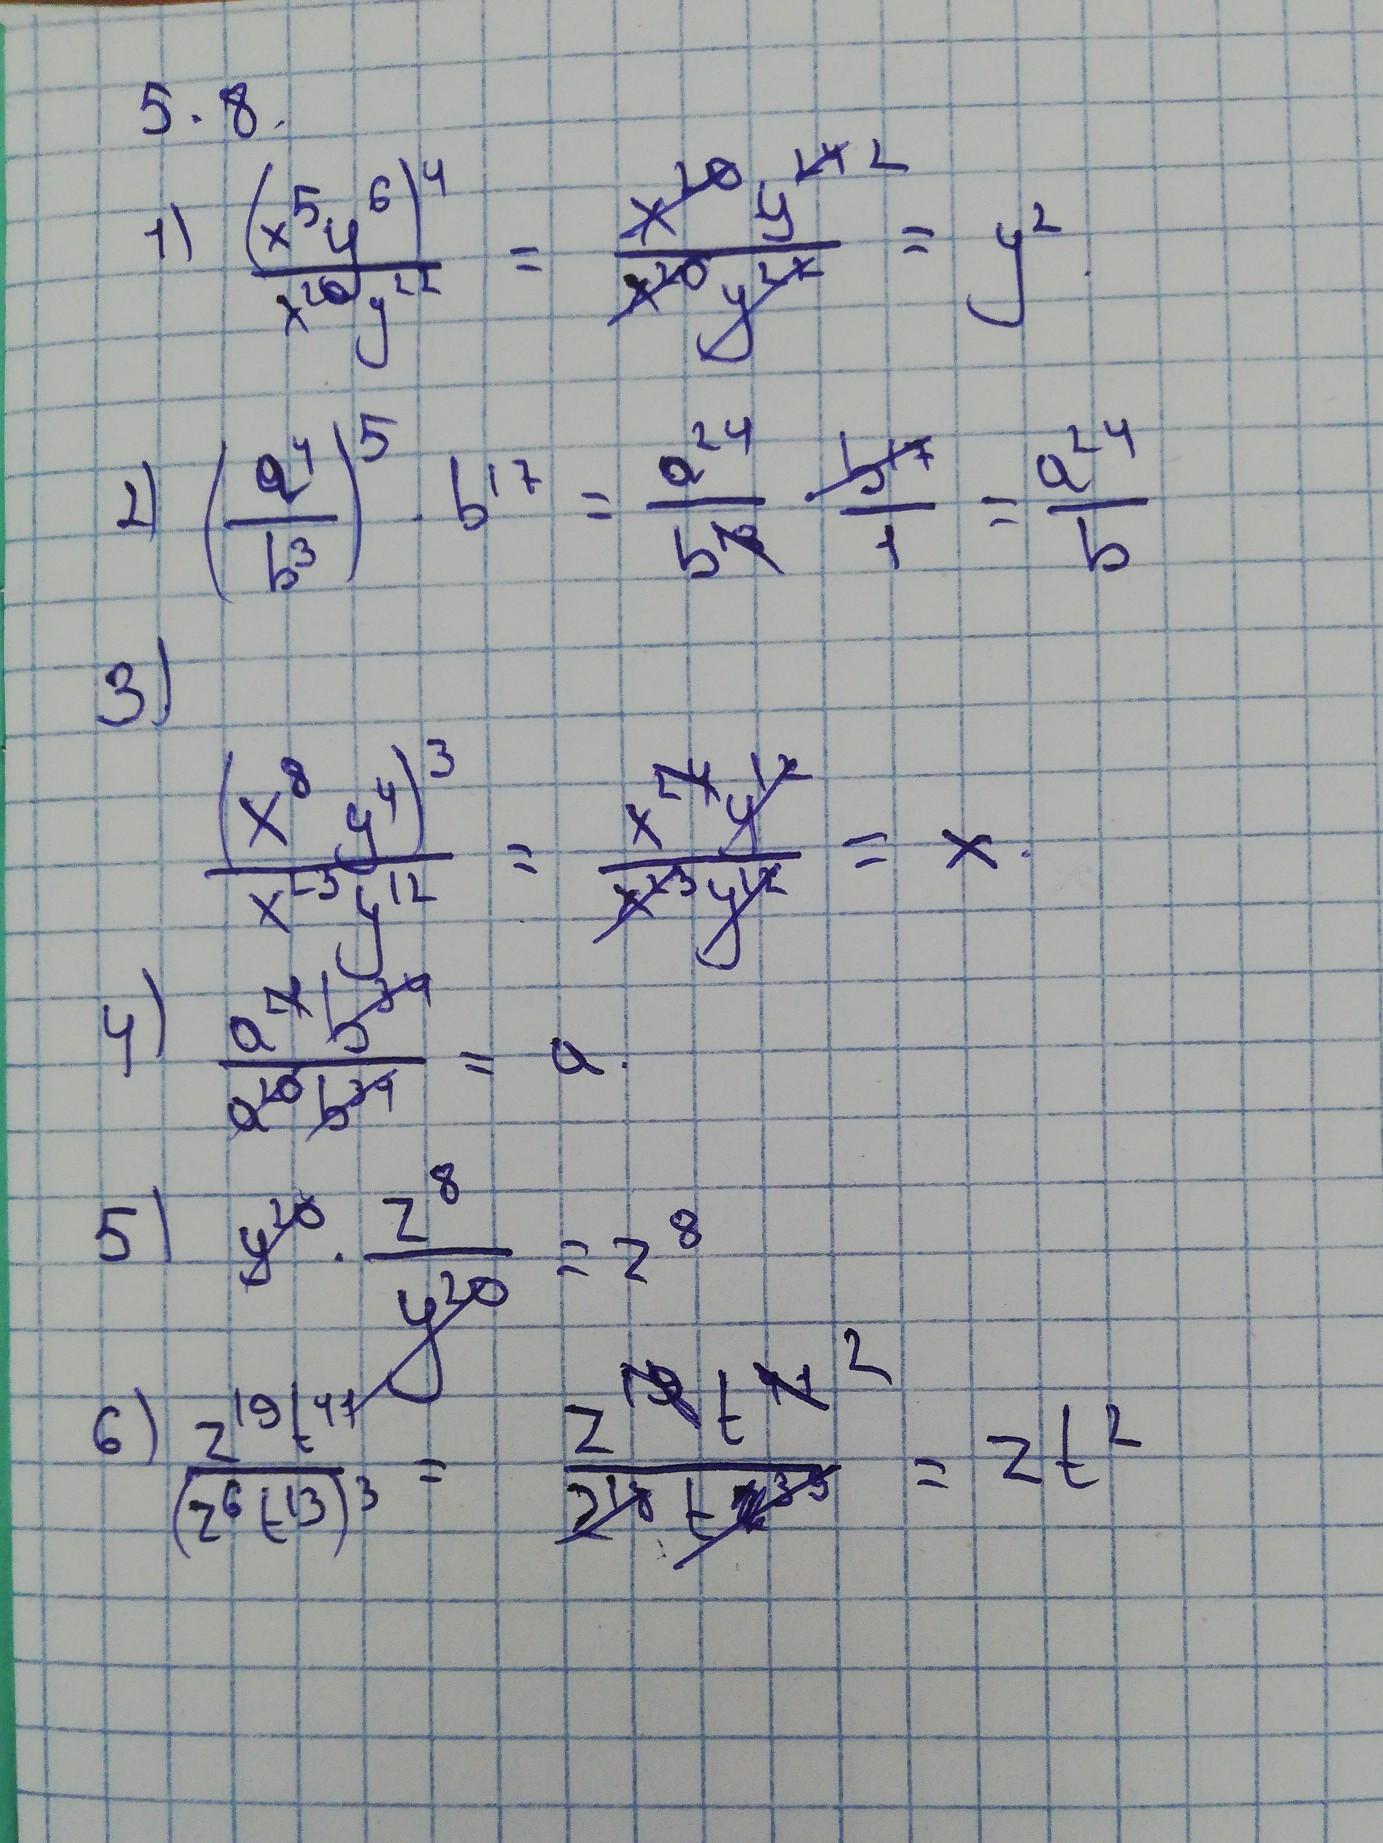 5.8.
1) (x^5 y^6)^4 / x^20 y^22 = x^20 y^24 2 / x^20 y^22 = y^2.
2) (a^4 / b^3)^5 · b^17 = a^24 / b^18 · b^17 / 1 = a^24 / b
3)
(x^8 y^4)^3 / x^23 y^12 = x^24 y^12 / x^23 y^12 = x.
4) a^21 b^39 / a^20 b^39 = a.
5) y^20 · z^8 / y^20 = z^8
6) z^19 t^41 / (z^6 t^13)^3 = z^19 t^41 2 / z^18 t^39 = zt^2